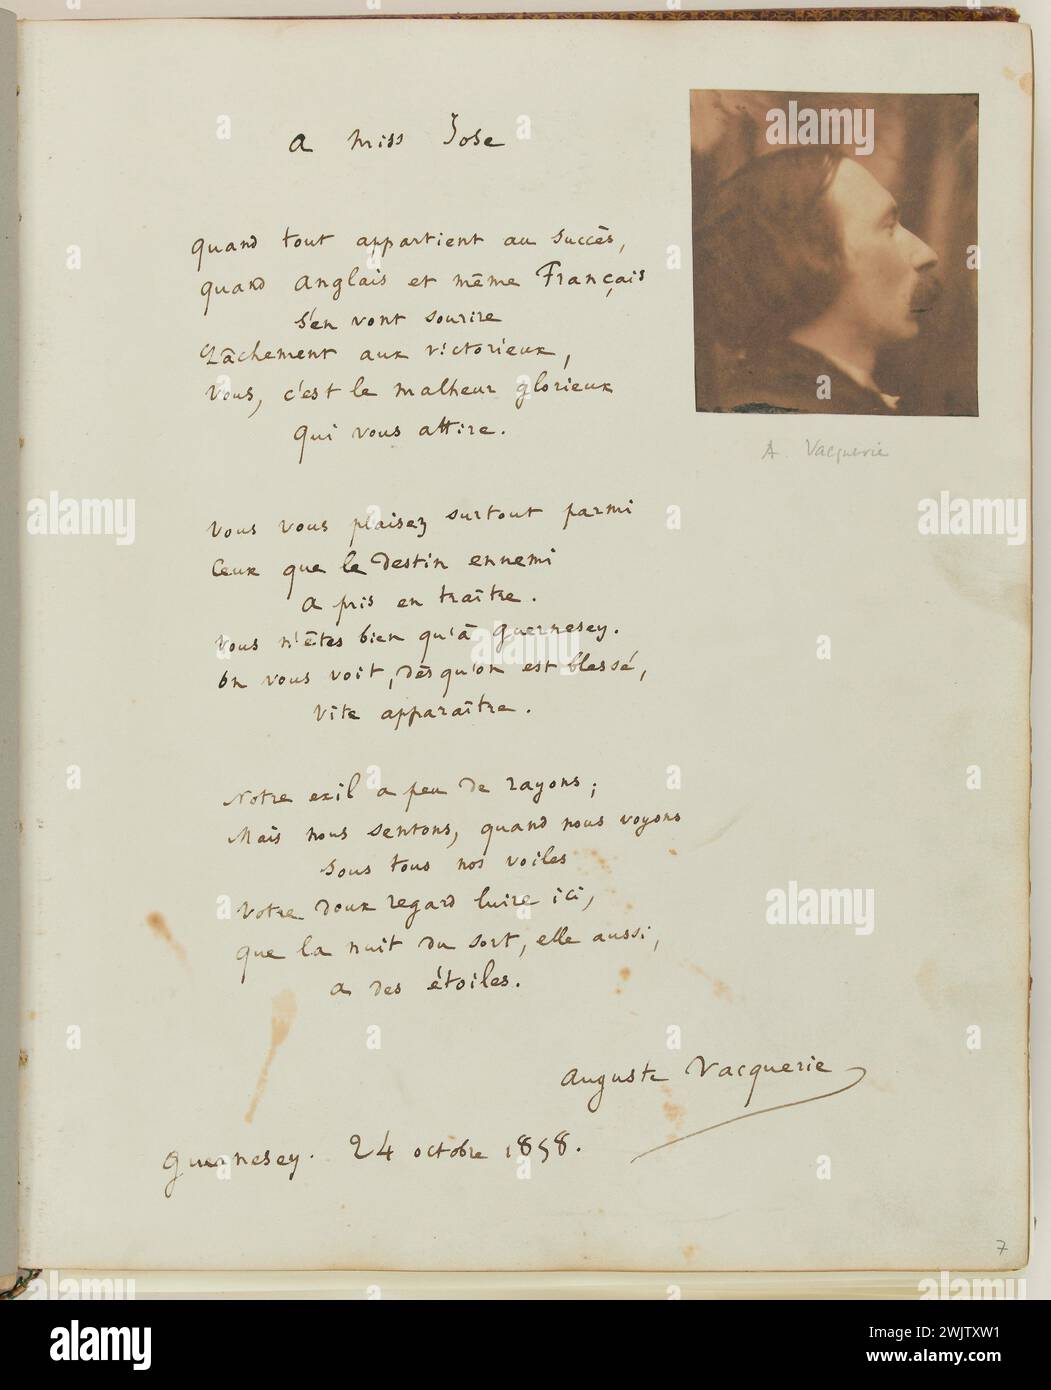 a miss Jose
quand tout appartient au succès,
quand anglais et même Français
s'en vont sourire
Lâchement aux victorieux,
vous, c'est le malheur glorieux
qui vous attire.
vous vous plaisez surtout parmi
ceux que le destin ennemi
a pris en traître.
vous n'êtes bien qu'à guernesey.
on vous voit, dès qu'on est blessé,
vite apparaître.
Notre exil a peu de rayons;
Mais nous sentons, quand nous voyons
sous tous nos voiles
votre doux regard luire ici,
que la nuit du sort, elle aussi,
a des étoiles.
auguste Vacquerie
guernesey. 24 octobre 1858.
A. Vacquerie
7
alamy
Image ID: 2WJTXW1
www.alamy.com